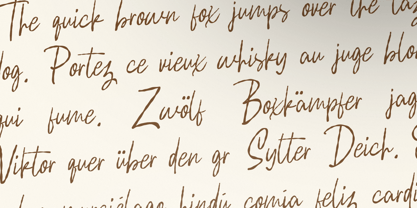 The quick brown fox jumps over the laz
log. Portez ce vieux whisky au juge blon
qui fume. Zwölf Boxkämpfer jag
Viktor quer über den gr Sylter Deich. S
hindú comía feliz cardi